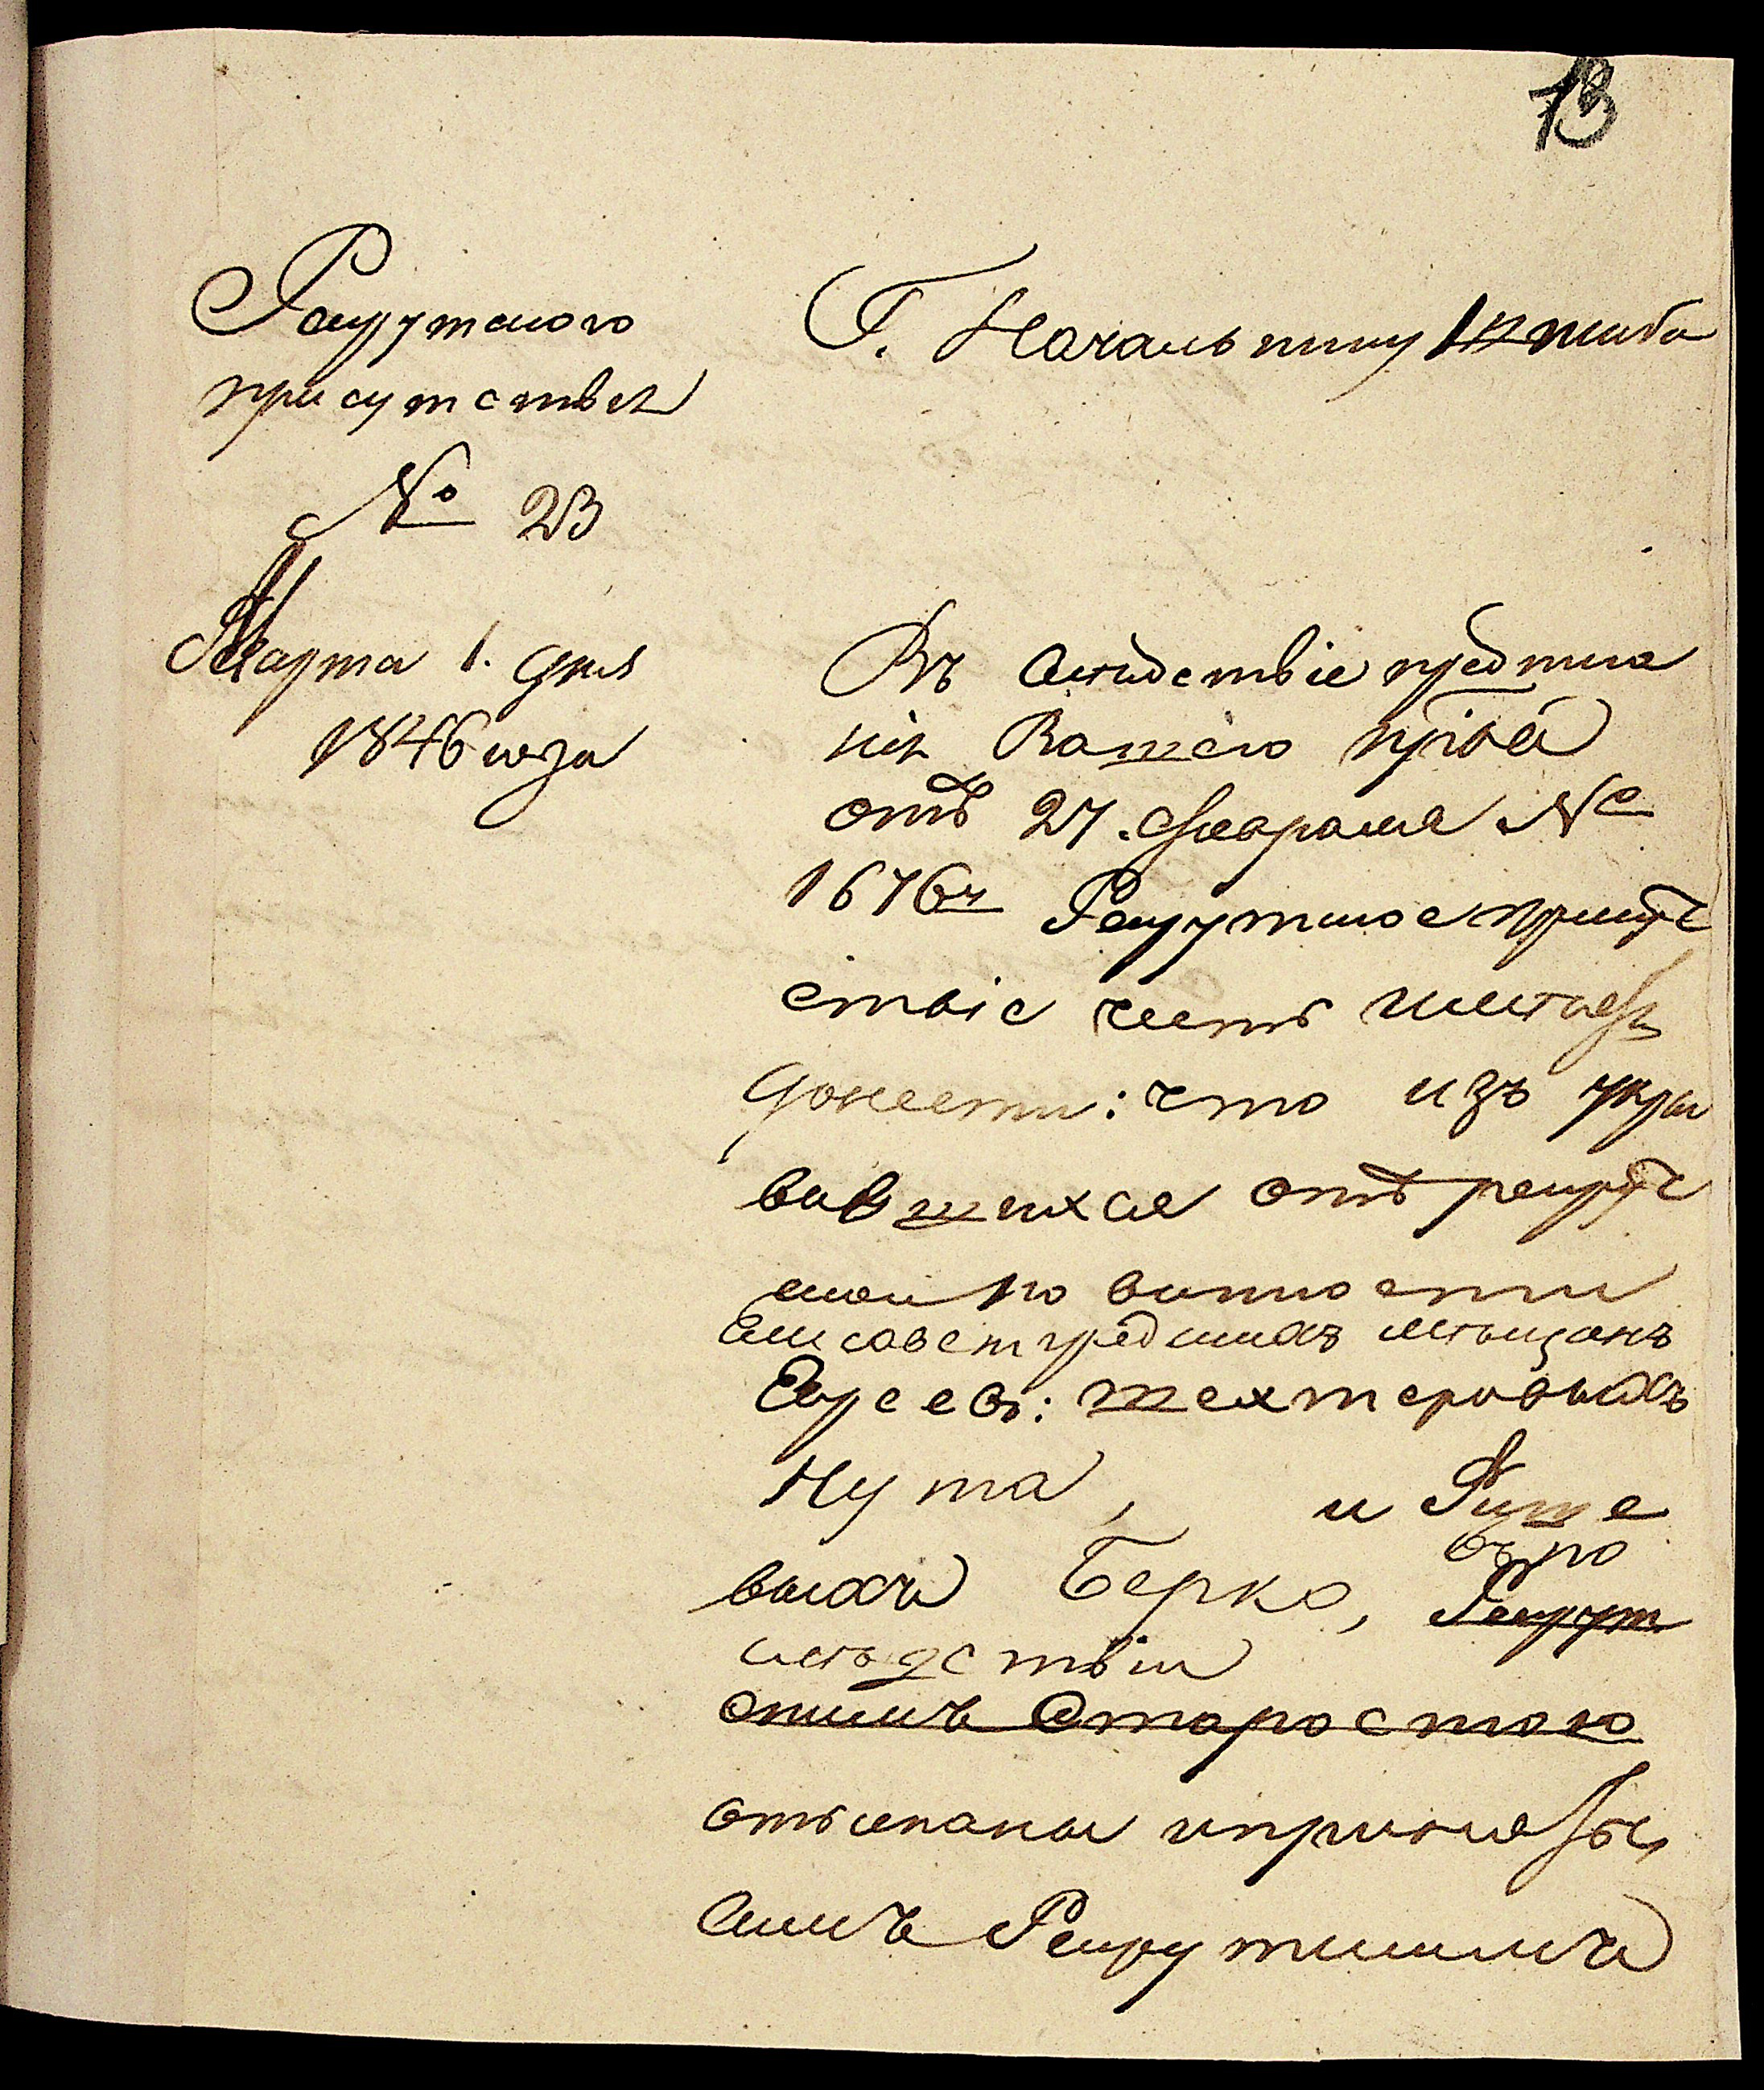 13
Рекрутского
присутствія
№ 23
Марта 1. дня
1846 года
Г. Начальнику Штаба
Въ слѣдствіе предписа
нія Вашего прі—ва
отъ 27. Февраля №
1676го Рекрутское присут
ствіе честь имѣетъ
донести: что изъ укры
вавшихся отъ рекрут
ской повинности
Елисаветградскихъ мѣщанъ
Евреевъ: Шехтеровыхъ
Нута, и Рише
выхъ Берко, Рекрут
въ по
слѣдствіи
скимъ Старостою
отысканы и
симъ Рекрутскимъ